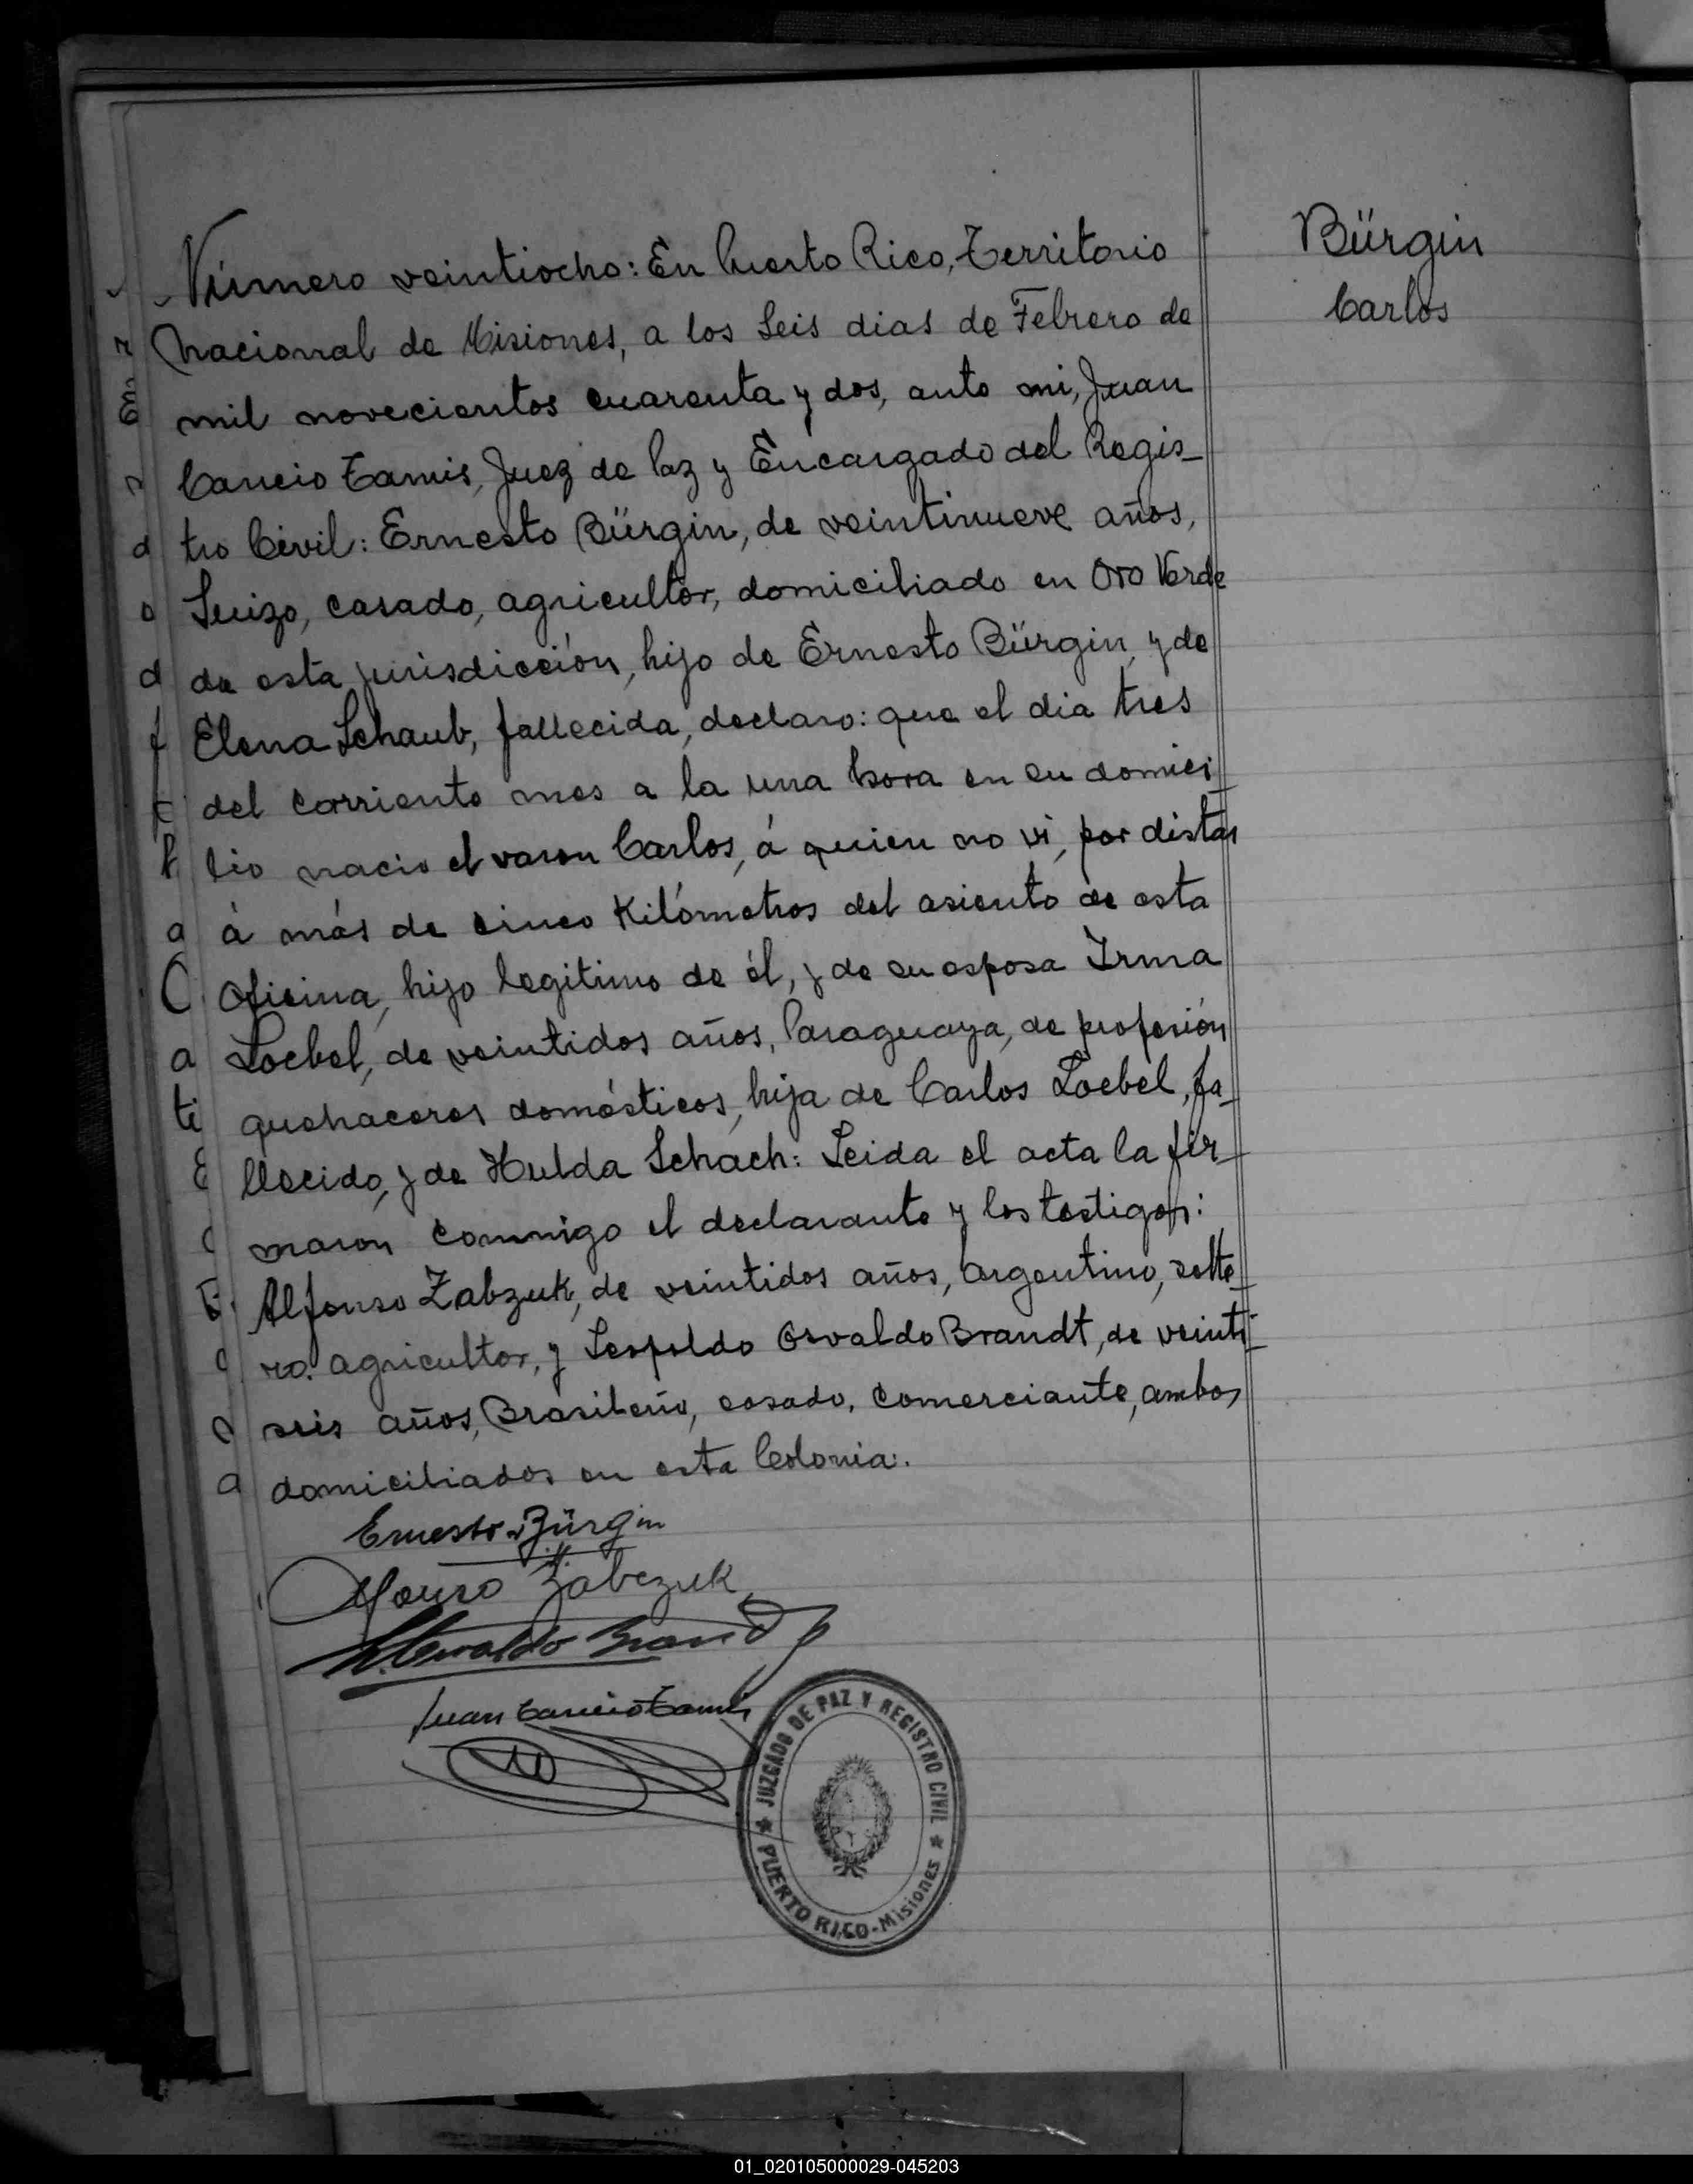 Número veintiocho: En Puerto Rico, Territorio
Nacional de Misiones, a los Seis dias de Febrero de
mil novecientos cuarenta y dos, ante mi, Juan
Cancio Tamis, Juez de Paz y Encargado del Regis-
tro Civil: Ernesto Bürgin, de veintinueve años,
Suizo, casado, agricultor, domiciliado en Oro Verde
de esta jurisdicción, hijo de Ernesto Bürgin, y de
Elena Schaub, fallecida, declaro: que el dia tres
del corriente mes a la una hora en su domici-
lio nacio el varon Carlos, á quien no vi, por distar
á más de cinco Kilómetros del asiento de esta
Oficina, hijo legitimo de él, y de su esposa Irma
Loebel, de veintidos años, Paraguaya, de profesión
quehaceres domésticos, hija de Carlos Loebel, fa-
llecido, y de Hulda Schach: Leida el acta la fir-
maron conmigo el declarante y los testigos:
Alfonso Zabzuk, de veintidos años, Argentino, solte-
ro. agricultor, y Leopoldo Osvaldo Brandt, de veinti-
seis años, Brasileño, casado, comerciante, ambos
domiciliados en esta Colonia.
Ernesto Bürgin
Alfonso Zabczuk
L. Osvaldo Brandt
Juan Cancio Tamis
JUZGADO DE PAZ Y REGISTRO CIVIL
PUERTO RICO-Misiones
Bürgin
Carlos
01_020105000029-045203